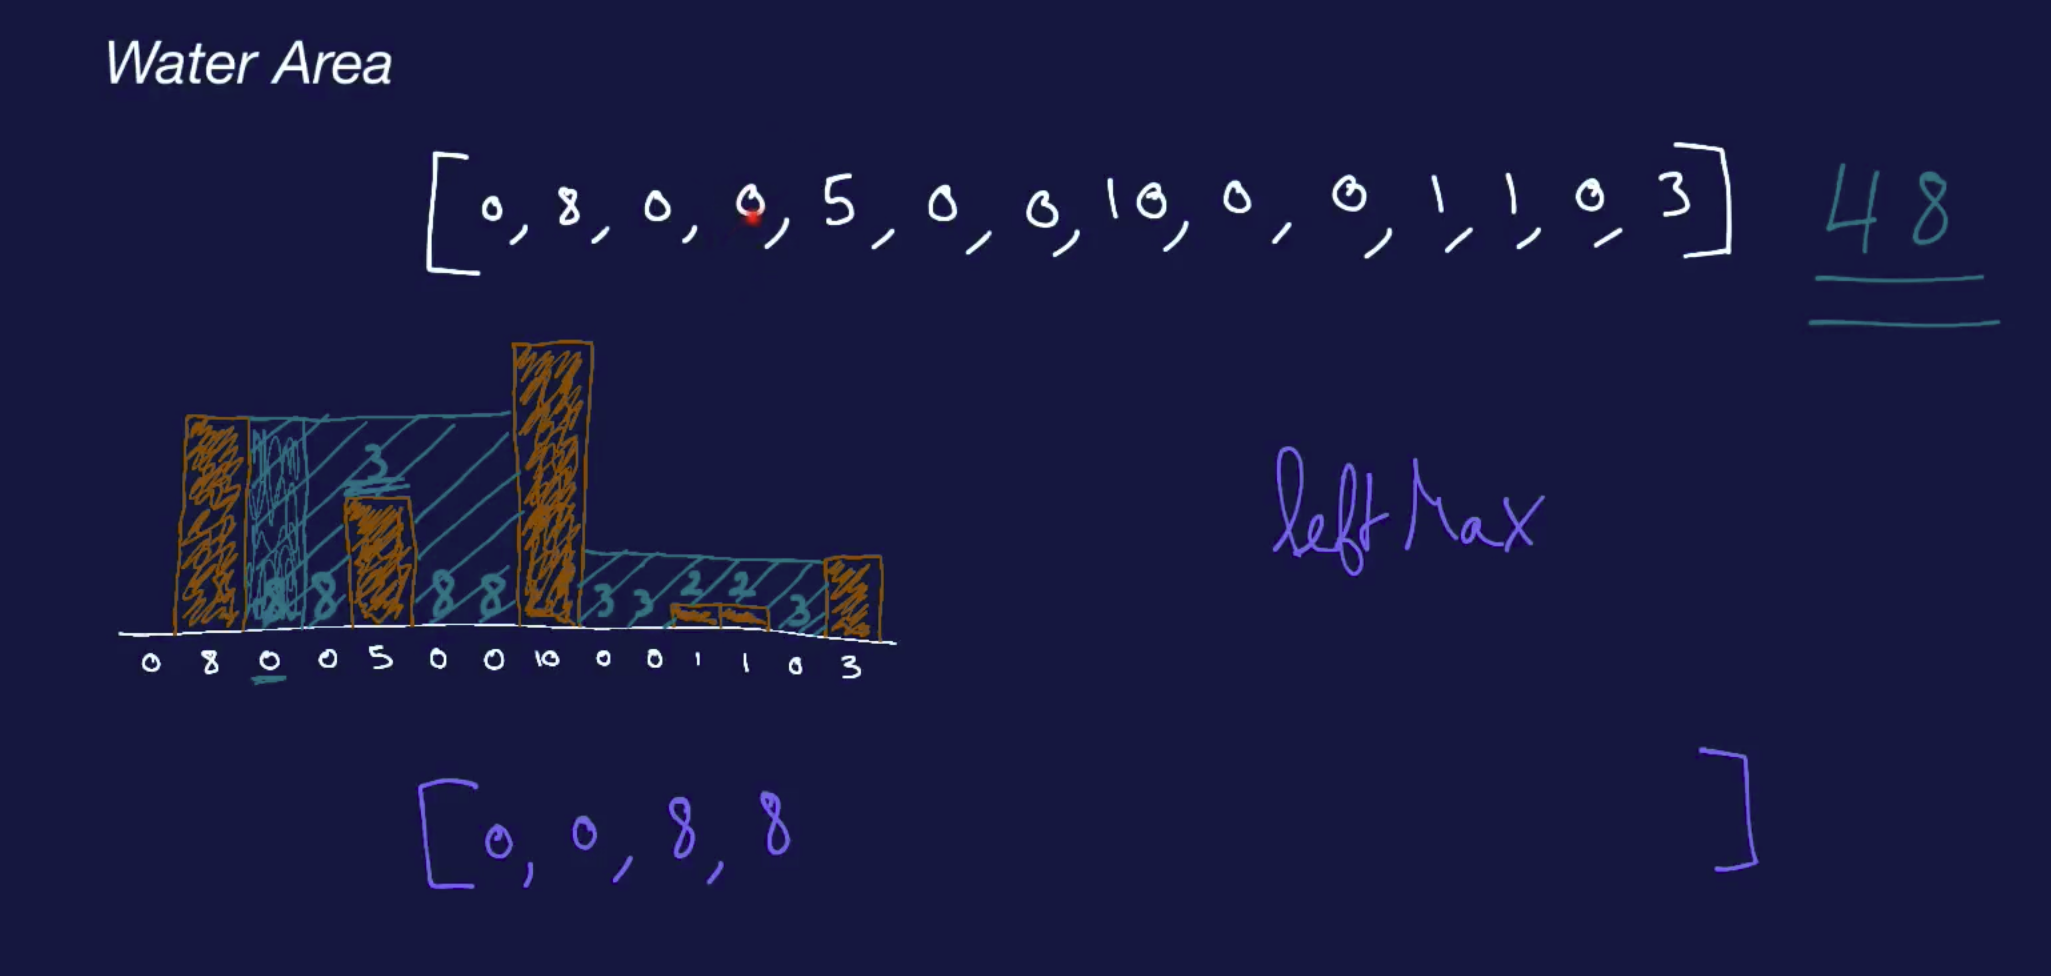 Water Area
[0, 8, 0, 0, 5, 0, 0, 10, 0, 0, 1, 1, 0, 3] 48
3
8 8 8 8 3 3 2 2 3
0 8 0 0 5 0 0 10 0 0 1 1 0 3
leftMax
[0, 0, 8, 8 ]